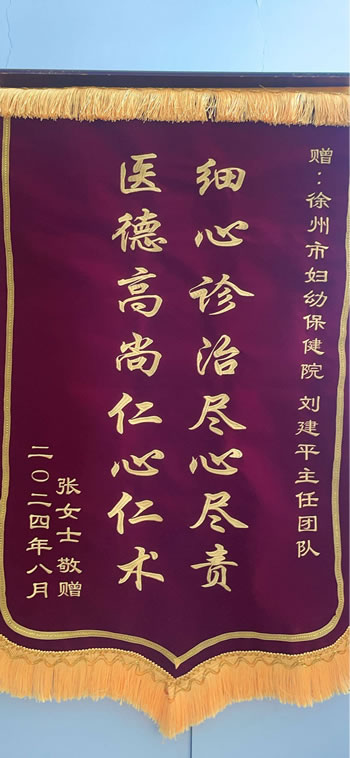 赠：徐州市妇幼保健院 刘建平主任团队
细心诊治尽心尽责
医德高尚仁心仁术
张女士 敬赠
二〇二四年八月